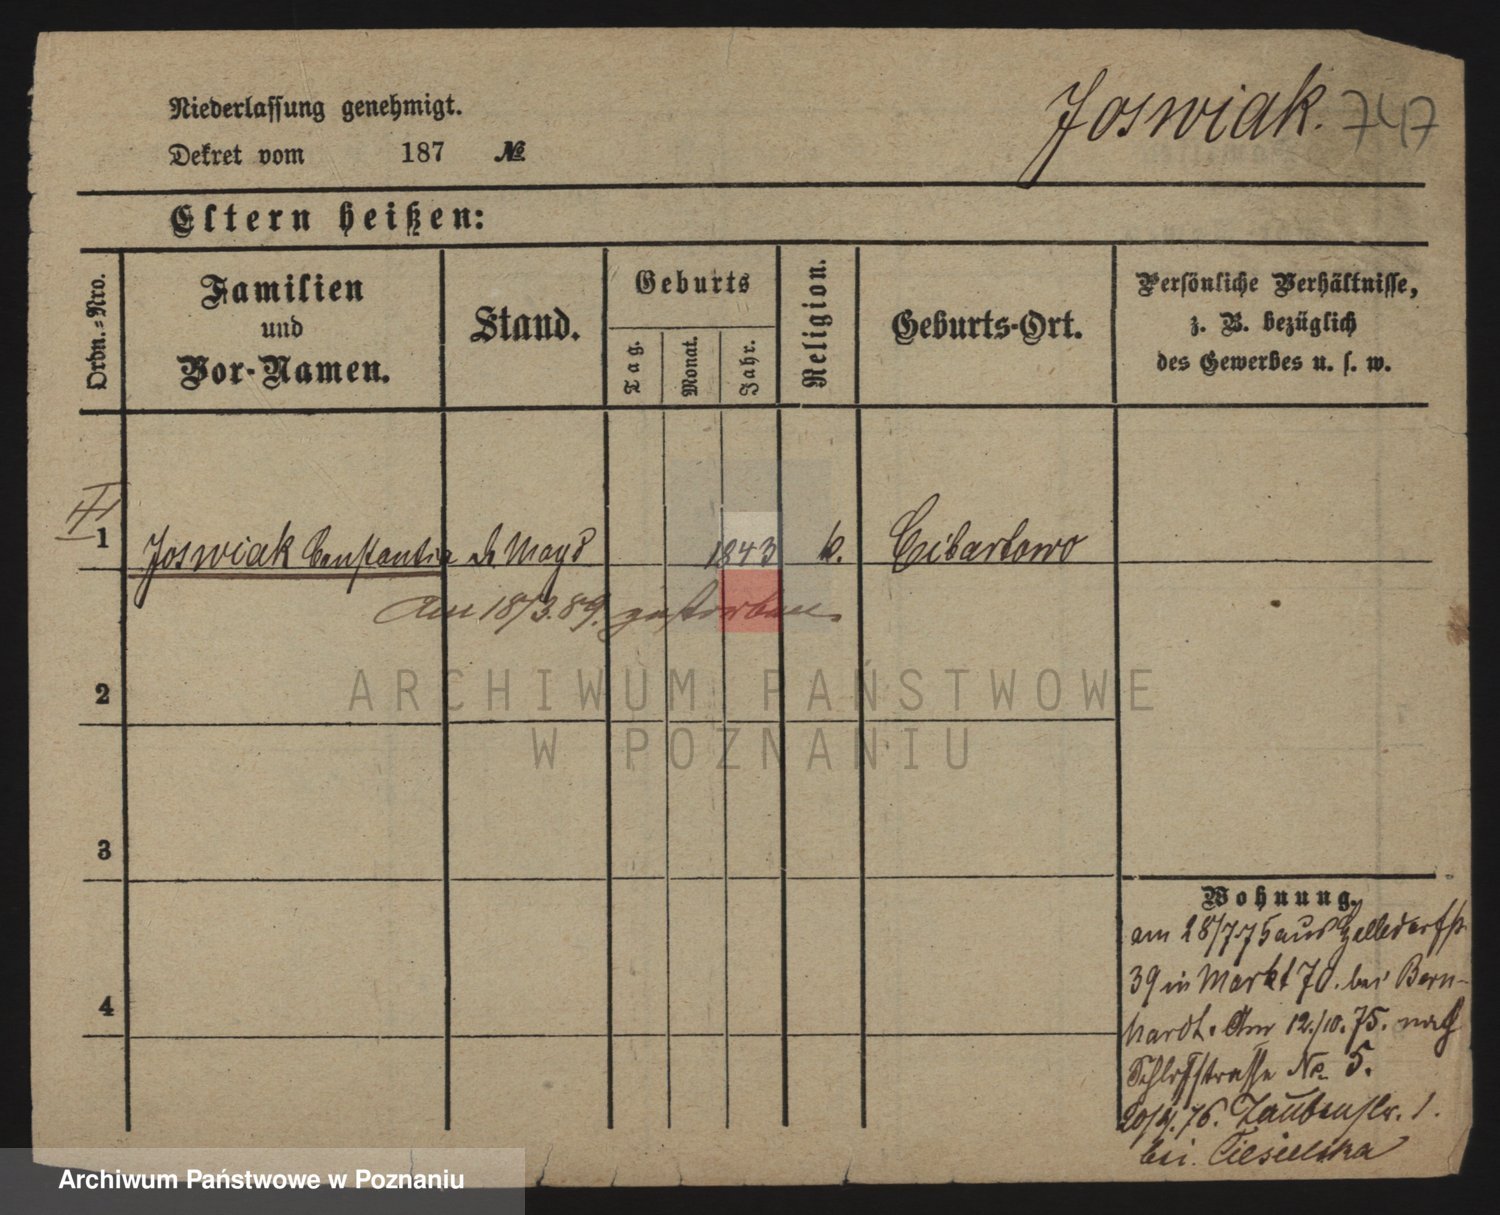 Niederlassung genehmigt.
Joswiak. 747
Dekret vom 187 №
Eltern heißen:
Ordn.-Nro.
Familien und Vor-Namen.
Stand.
Geburts
Tag. Monat. Jahr.
Religion.
Geburts-Ort.
Persönliche Verhältnisse, z. B. bezüglich des Gewerbes u. s. w.
1 Joswiak Constantia d. Magd 1843 k. Cibartowo
Am 18/3.89. gestorben.
2
3
4
Wohnung.
am 28/7 75 aus
39 in Markt 70. bei Bern-
hardt. Am 12./10. 75. nach
Schloßstrasse No 5.
20/4. 76. Taubenstr. 1.
bei Ciesielska
ARCHIWUM PAŃSTWOWE
W POZNANIU
Archiwum Państwowe w Poznaniu